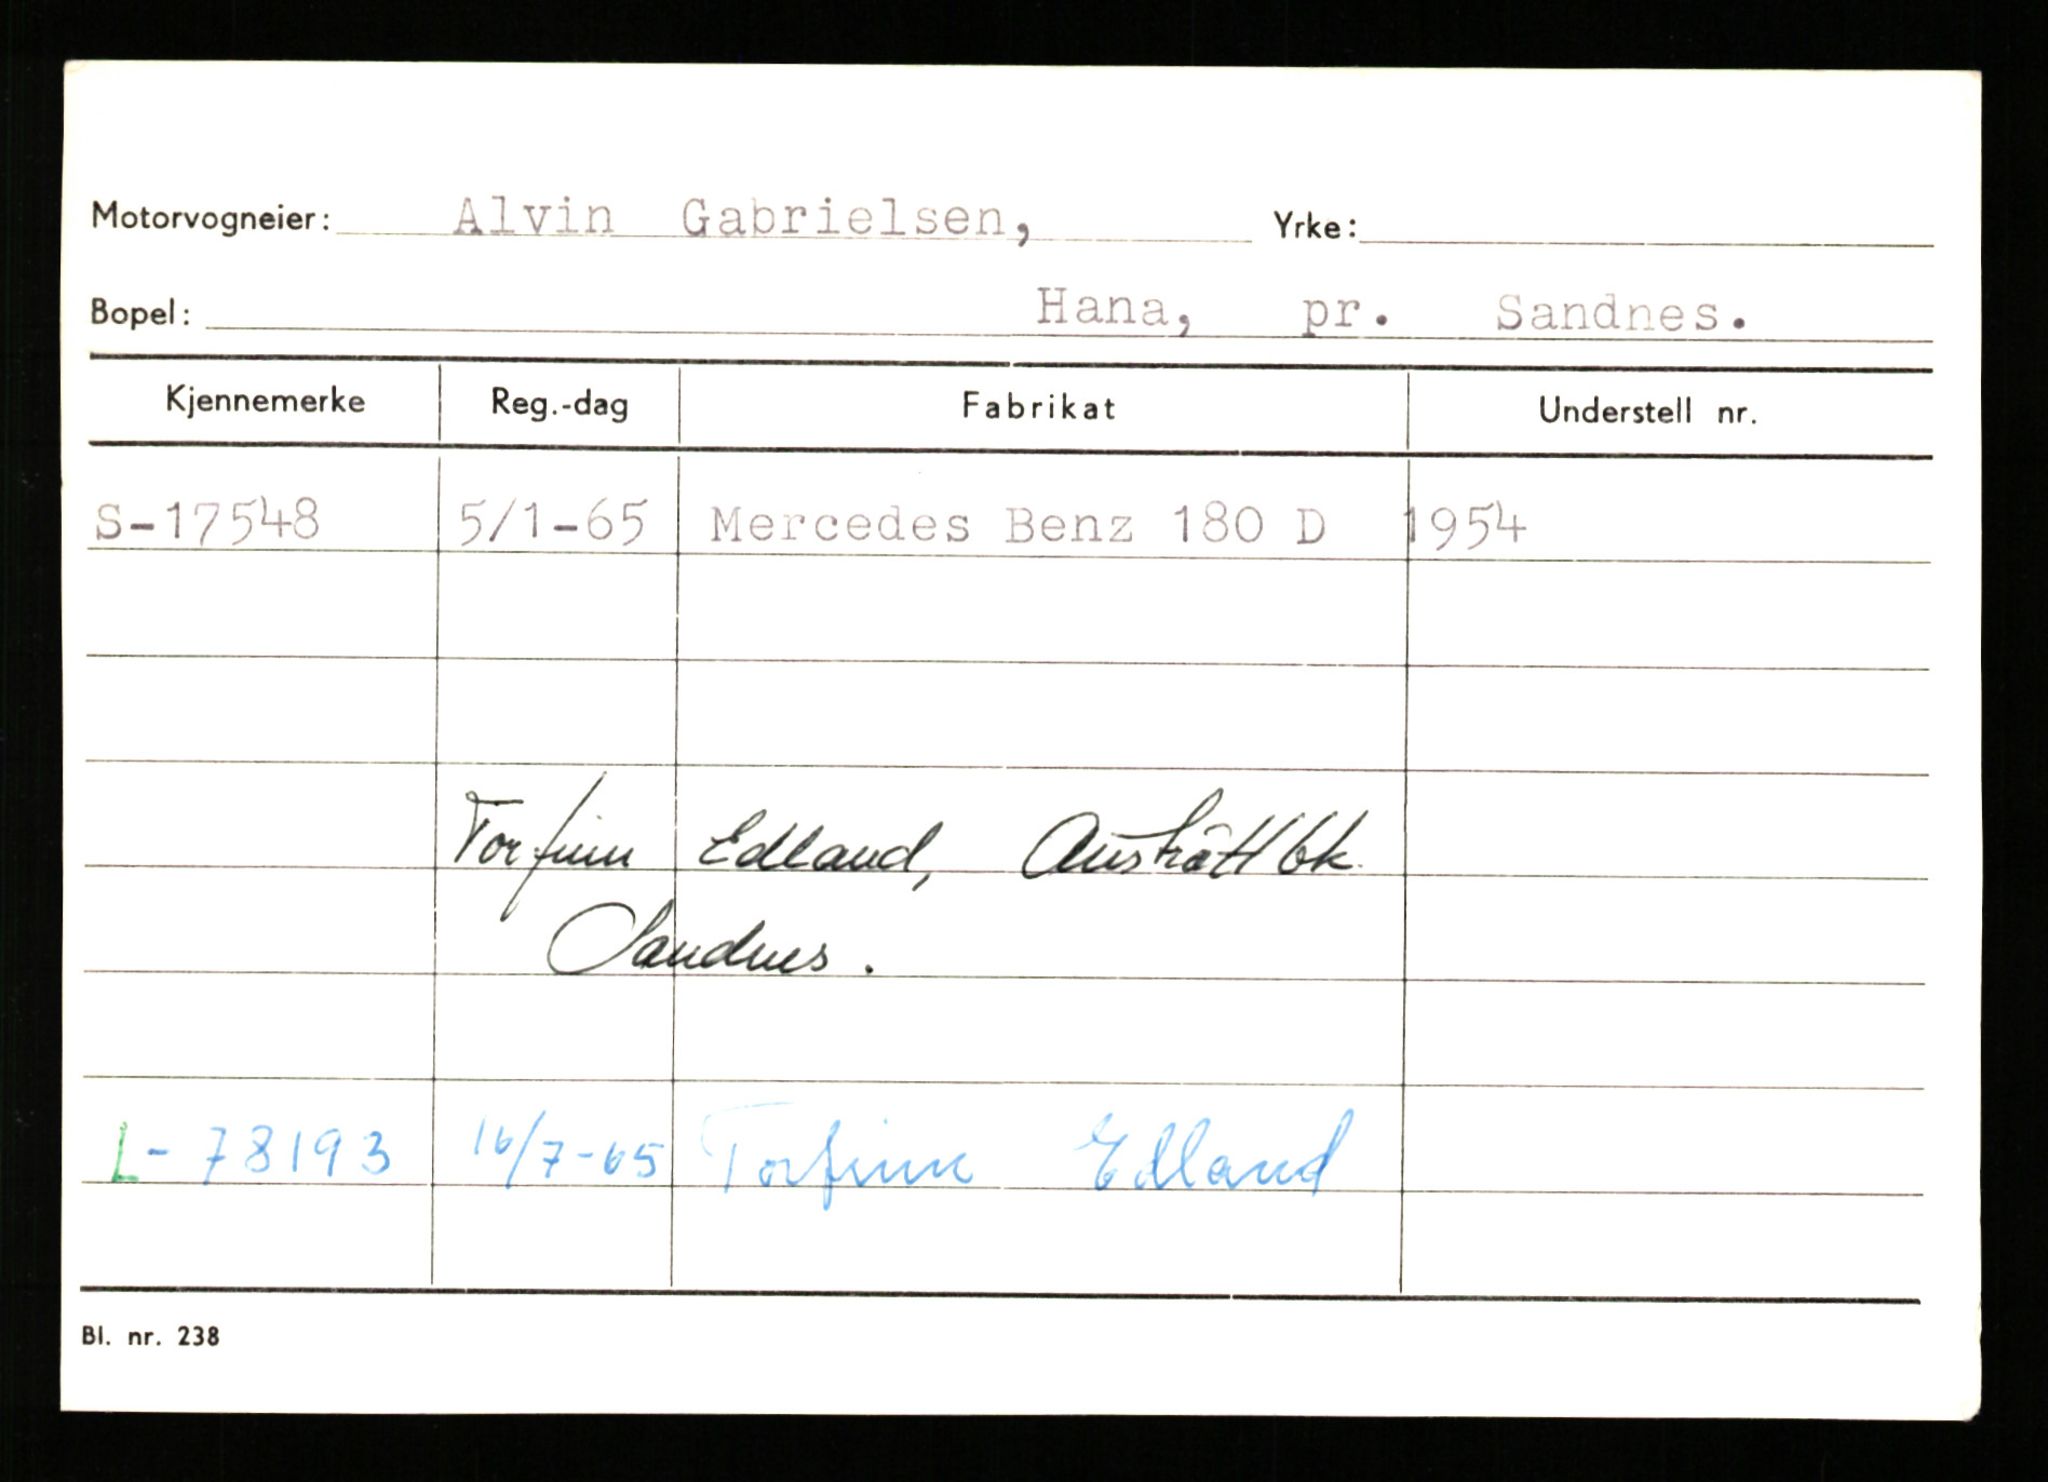 Motorvogneier: Alvin Gabrielsen, Yrke:
Bopel: Hana, pr. Sandnes.
Kjennemerke Reg.-dag Fabrikat Understell nr.
S-17548 5/1-65 Mercedes Benz 180 D 1954
Torfinn Edland, Austråttbk.
Sandnes.
L-78193 16/7-65 Torfinn Edland
Bl. nr. 238